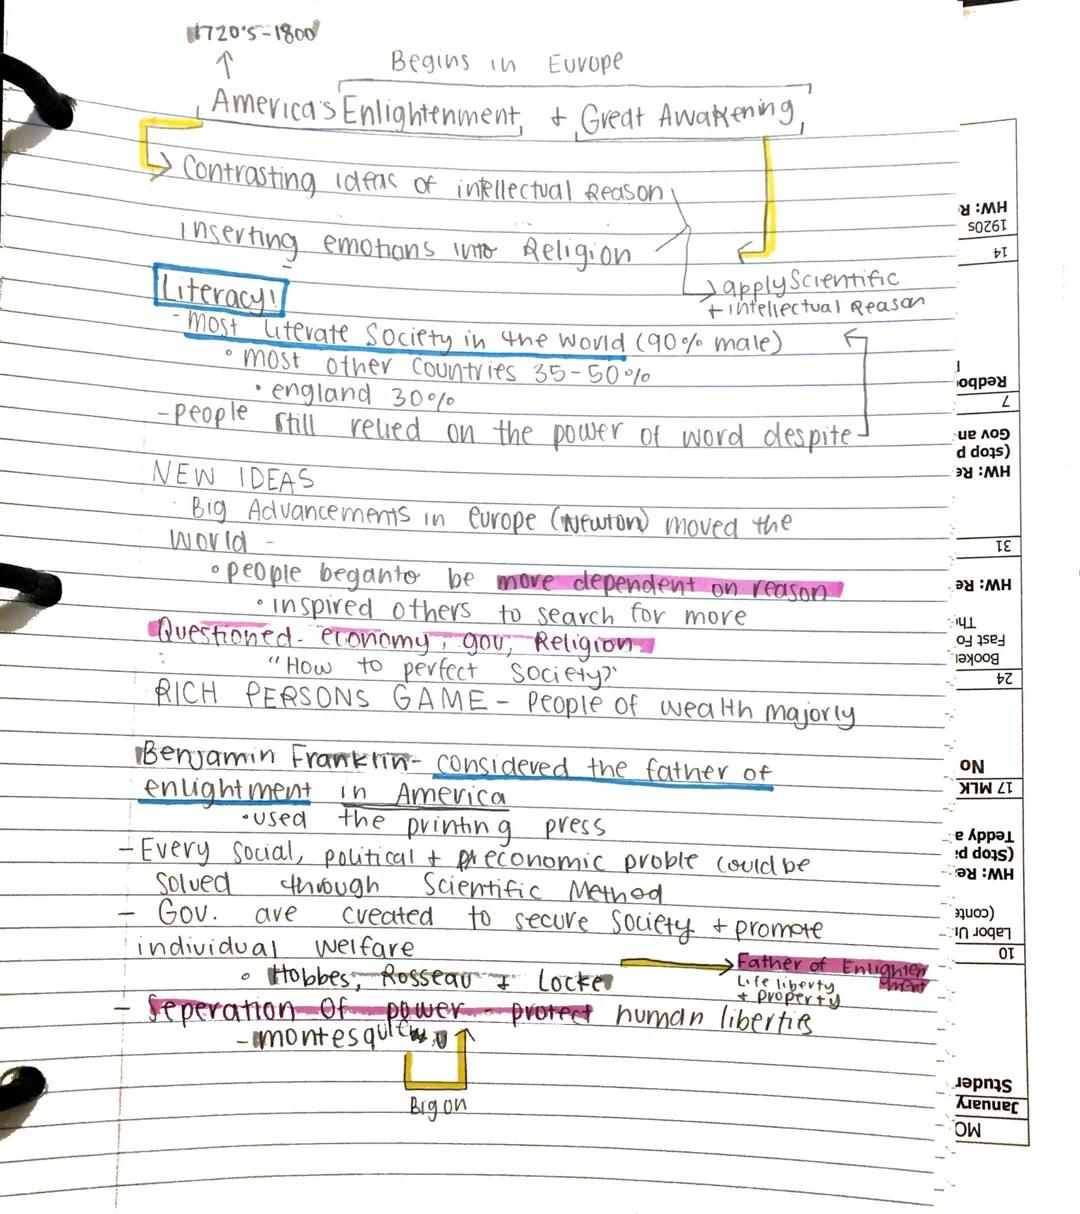 1720's-1800
Begins in Europe
America's Enlightenment + Great Awakening
Contrasting ideas of intellectual Reason
inserting emotions into Religion
apply Scientific
+ intellectual Reason
Literacy!
- most literate Society in the world (90% male)
• most other countries 35-50%
• england 30%
-people still relied on the power of word despite
NEW IDEAS
Big Advancements in Europe (Newton) moved the
World -
• people began to be more dependent on reason
• inspired others to search for more
Questioned- economy, gov, Religion
"How to perfect Society?"
RICH PERSONS GAME - People of wealth majorly
Benjamin Franklin- considered the father of
enlightment in America
• used the printing press
- Every Social, political + economic proble could be
Solved through Scientific Method
- Gov. are created to secure Society + promote
individual welfare
• Hobbes, Rosseau + Locke
Father of Enlightenment
Life liberty
+ property
- Seperation Of power - protect human liberties
- montesquieu
Big on
HW: R
1920s
14
Redboo
7
Gov an
(stop p
HW: Re
31
HW: Re
Th
Fast Fo
Booker
24
No
17 MLK
Teddy a
(Stop pa
HW: Re
(conte
Labor Un
10
Studer
January
MO